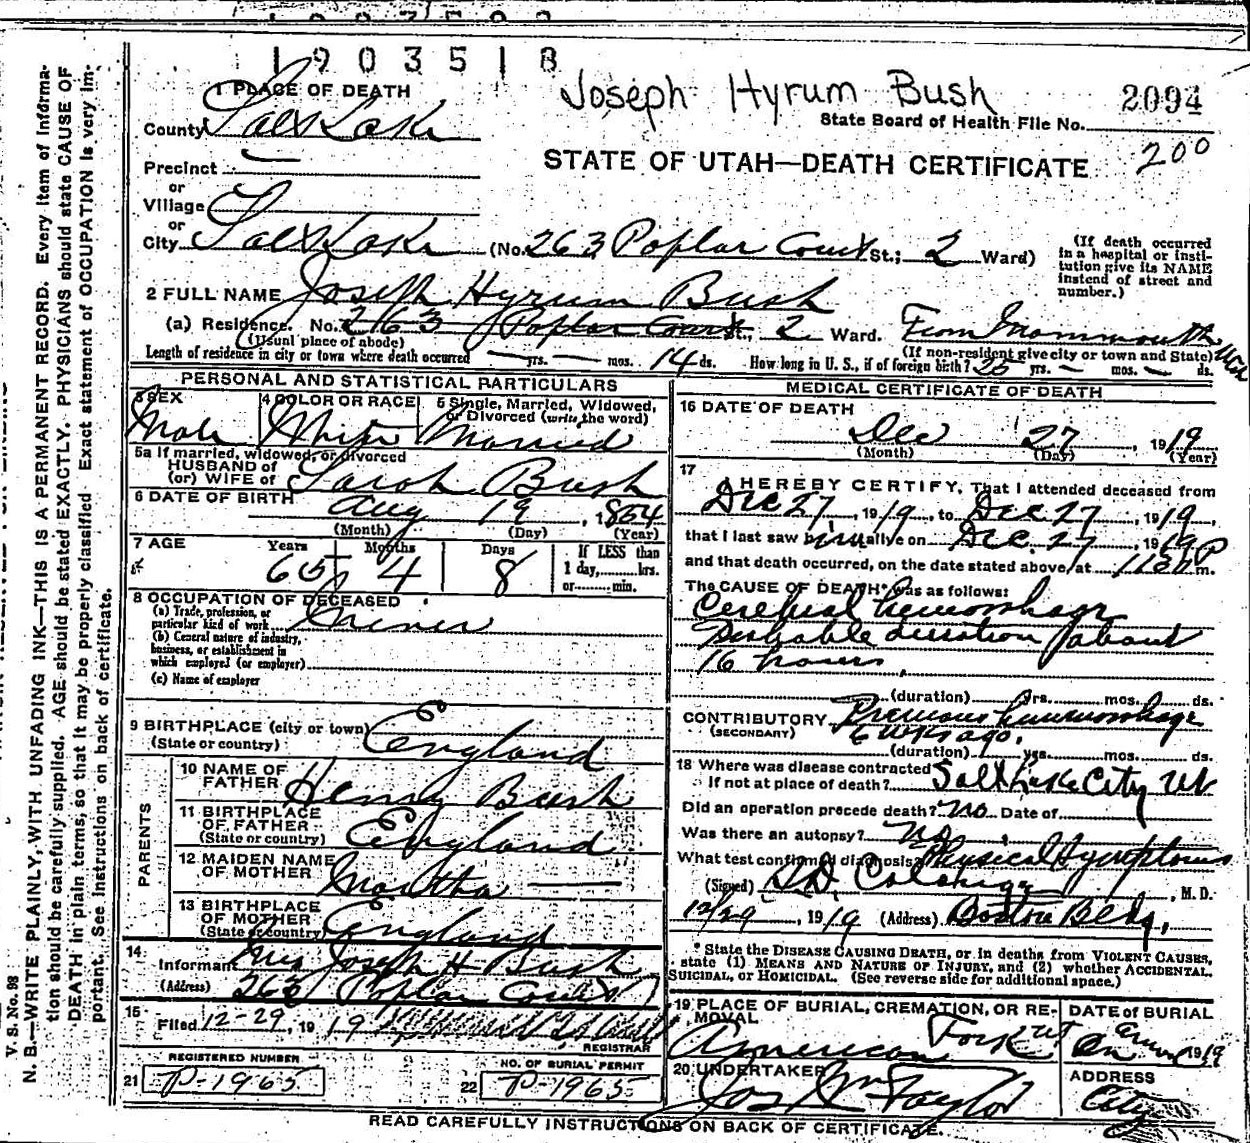 1903518
Joseph Hyrum Bush
2094
State Board of Health File No.
200
1 PLACE OF DEATH
County Salt Lake
STATE OF UTAH—DEATH CERTIFICATE
Precinct
or
Village
or
City Salt Lake (No. 263 Poplar Court St.; 2 Ward)
(If death occurred in a hospital or institution give its NAME instead of street and number.)
2 FULL NAME Joseph Hyrum Bush
(a) Residence. No. 263 Poplar Court St., 2 Ward. From Mammouth Utah
(Usual place of abode) (If non-resident give city or town and State)
Length of residence in city or town where death occurred — yrs. — mos. 14 ds. How long in U. S., if of foreign birth? 25 yrs. — mos. — ds.
PERSONAL AND STATISTICAL PARTICULARS
3 SEX 4 COLOR OR RACE 5 Single, Married, Widowed, or Divorced (write the word)
Male White Married
5a If married, widowed, or divorced
HUSBAND of
(or) WIFE of Sarah Bush
6 DATE OF BIRTH Aug 19, 1854
(Month) (Day) (Year)
7 AGE Years Months Days If LESS than 1 day,........hrs. or.........min.
65 4 8
8 OCCUPATION OF DECEASED
(a) Trade, profession, or particular kind of work Miner
(b) General nature of industry, business, or establishment in which employed (or employer)
(c) Name of employer
9 BIRTHPLACE (city or town)
(State or country) England
PARENTS
10 NAME OF FATHER Henry Bush
11 BIRTHPLACE OF FATHER (State or country) England
12 MAIDEN NAME OF MOTHER Martha —
13 BIRTHPLACE OF MOTHER (State or country) England
14 Informant Mrs Joseph H Bush
(Address) 263 Poplar Court
15 Filed 12-29, 1919
REGISTRAR
REGISTERED NUMBER NO. OF BURIAL PERMIT
21 P-1965 22 P-1965
MEDICAL CERTIFICATE OF DEATH
16 DATE OF DEATH
Dec 27, 1919
(Month) (Day) (Year)
17 I HEREBY CERTIFY, That I attended deceased from
Dec 27, 1919, to Dec 27, 1919,
that I last saw him alive on Dec. 27, 1919
and that death occurred, on the date stated above, at P m.
The CAUSE OF DEATH* was as follows:
Cerebral hemorrhage
Probable duration about
16 hours
(duration) yrs. mos. ds.
CONTRIBUTORY Previous hemorrhage
(SECONDARY) 6 wks ago.
(duration) yrs. mos. ds.
18 Where was disease contracted
if not at place of death? Salt Lake City Ut
Did an operation precede death? No Date of
Was there an autopsy? No
What test confirmed diagnosis? Physical Symptoms
(Signed) , M. D.
12/29, 1919 (Address) Boston Bldg,
* State the DISEASE CAUSING DEATH, or in deaths from VIOLENT CAUSES, state (1) MEANS AND NATURE OF INJURY, and (2) whether ACCIDENTAL, SUICIDAL, or HOMICIDAL. (See reverse side for additional space.)
19 PLACE OF BURIAL, CREMATION, OR REMOVAL DATE OF BURIAL
American Fork Ut 1919
20 UNDERTAKER ADDRESS
Jos Wm Taylor City
READ CAREFULLY INSTRUCTIONS ON BACK OF CERTIFICATE.
V. S. No. 98
N. B.—WRITE PLAINLY, WITH UNFADING INK—THIS IS A PERMANENT RECORD. Every item of information should be carefully supplied. AGE should be stated EXACTLY. PHYSICIANS should state CAUSE OF DEATH in plain terms, so that it may be properly classified. Exact statement of OCCUPATION is very important. See instructions on back of certificate.